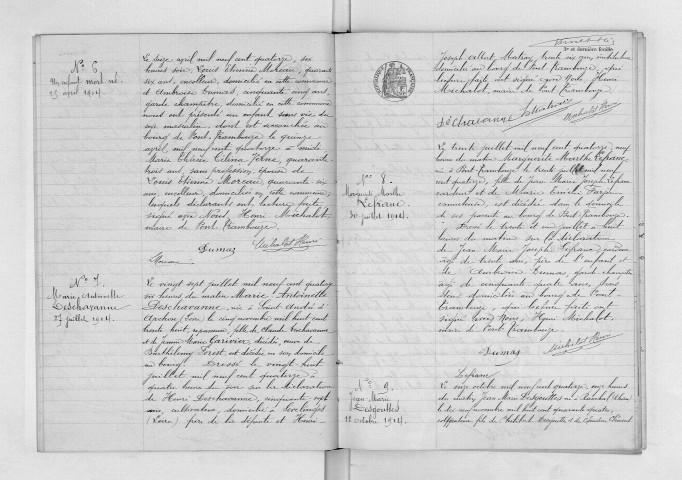 N° 6.
Un enfant mort né.
15 avril 1914.
Le seize avril mil neuf cent quatorze, six
heures soir, Louis Etienne Moreau, quarante
six ans, encolleur, domicilié en cette commune
et Ambroise Dumas, cinquante cinq ans,
garde champêtre, domicilié en cette commune
nous ont présenté un enfant sans vie du
sexe masculin, dont est accouchée au
bourg de Pont Trambouze le quinze
avril mil neuf cent quatorze à midi
Marie Thérèse Célina, quarante
trois ans, sans profession, épouse de
Louis Etienne Moreau, quarante-six
ans, encolleur, domiciliés en cette commune,
lesquels déclarants ont, lecture faite
signé avec Nous, Henri Michalot,
maire de Pont Trambouze.
Dumas Michalot Henri
Moreau
N° 7.
Marie Antoinette
Deschavanne
27 juillet 1914.
Le vingt sept juillet mil neuf cent quatorze
six heures du matin, Marie Antoinette
Deschavanne, née à Saint André d'
Apchon, Loire le cinq novembre mil huit cent
trente huit, repasseuse, fille de Claude Deschavanne
et de Jeanne Marie Garivier, décédés, veuve de
Barthélemy Forest est décédée en son domicile
au bourg. Dressé le vingt huit
juillet mil neuf cent quatorze à
quatre heures du soir sur la déclaration
de Henri Deschavanne, cinquante sept
ans, cultivateur, domicilié à Sevelinges
(Loire) frère de la défunte et Henri-
3e et dernière feuille
Joseph Albert Matray, trente six ans, instituteur
domicilié au bourg de Pont Trambouze, qui
lecture faite ont signé avec Nous, Henri
Michalot, maire de Pont Trambouze
Deschavanne Matray
Michalot Henri
N° 8.
Marguerite Marthe
Lefranc
30 juillet 1914.
Le trente juillet mil neuf cent quatorze, neuf
heures du matin Marguerite Marthe Lefranc
née à Pont Trambouze le trente juillet mil neuf
cent quatorze, fille de Jean Marie Joseph Lefranc
et de Marie
est décédée dans le domicile
de ses parents au bourg de Pont Trambouze.
Dressé le trente et un juillet à huit
heures du matin sur la déclaration
de Jean Marie Joseph Lefranc
âgé de trente ans, père de l'enfant et
de Ambroise Dumas, garde champêtre
âgé de cinquante quatre ans, tous
deux domiciliés au bourg de Pont-
Trambouze, qui lecture faite ont
signé avec Nous, Henri Michalot,
maire de Pont Trambouze
Dumas Michalot Henri
Lefranc
N° 9.
Jean Marie
Desgouttes
11 octobre 1914.
Le onze octobre mil neuf cent quatorze, onze heures
du matin, Jean Marie Desgouttes né à
le dix novembre mil huit cent quarante quatre,
fils de Philibert Desgouttes et de Claudine Clément